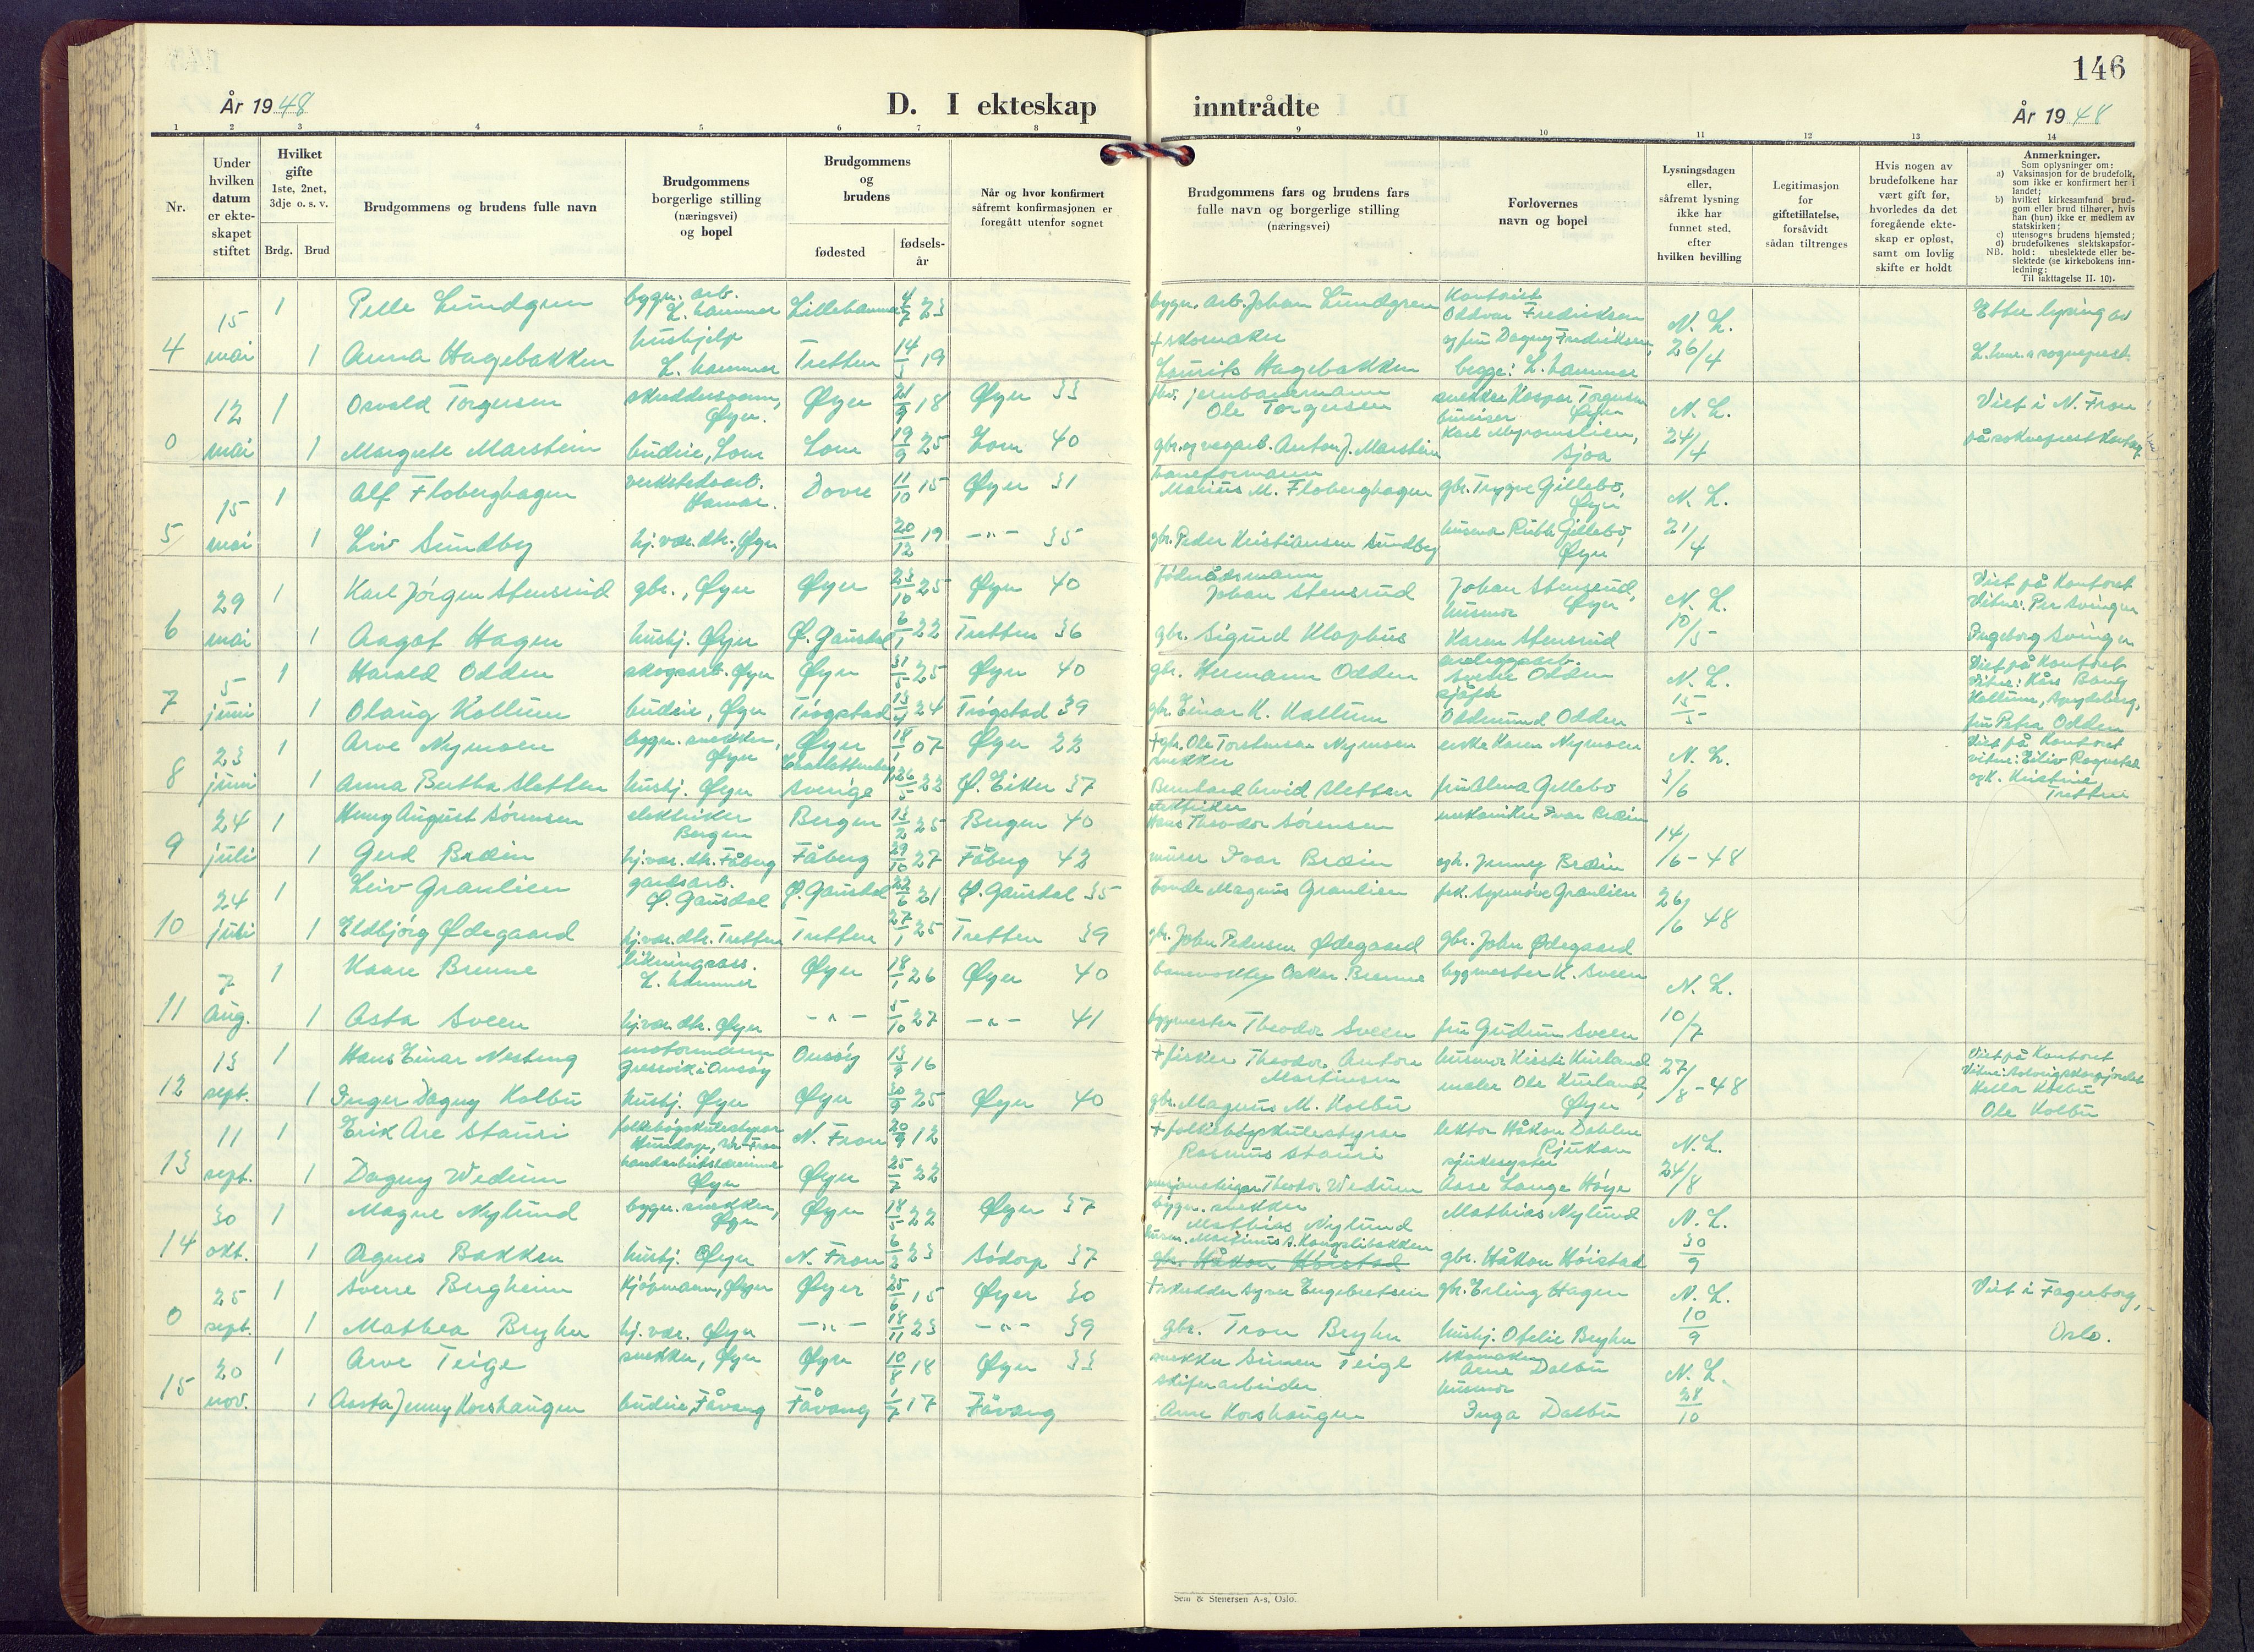 146
År 1948
D. I ekteskap inntrådte
År 1948
1 2 3 4 5 6 7 8 9 10 11 12 13 14
Nr.
Under hvilken datum er ekte-skapet stiftet
Hvilket gifte 1ste, 2net, 3dje o. s. v.
Brdg. Brud
Brudgommens og brudens fulle navn
Brudgommens borgerlige stilling (næringsvei) og bopel
Brudgommens og brudens
fødested
fødsels-år
Når og hvor konfirmert såfremt konfirmasjonen er foregått utenfor sognet
Brudgommens fars og brudens fars fulle navn og borgerlige stilling (næringsvei)
Forlovernes navn og bopel
Lysningsdagen eller, såfremt lysning ikke har funnet sted, efter hvilken bevilling
Legitimasjon for giftetillatelse, forsåvidt sådan tiltrenges
Hvis nogen av brudefolkene har vært gift før, hvorledes da det foregående ekte-skap er opløst, samt om lovlig skifte er holdt
Anmerkninger.
Som oplysninger om:
a) Vaksinasjon for de brudefolk, som ikke er konfirmert her i landet;
b) hvilket kirkesamfund brud-gom eller brud tilhører, hvis han (hun) ikke er medlem av statskirken;
c) utensogns brudens hjemsted;
d) brudefolkenes slektskapsfor-hold: ubeslektede eller be-slektede (se kirkebokens inn-ledning:
NB.
Til iakttagelse II. 10).
4 15 mai 1 Pelle Lundgren bygn. arb. L.hammer Lillehammer 4/7 23 bygn. arb. Johan Lundgren Kontorist Oddvar Fredriksen N. L. 26/4 Etter lysing av
1 Anna Hagebakken hushjelp L. hammer Tretten 14/5 19 + skomaker Laurits Hagebakken og fru Dagny Fredriksen, begge: L. hammer L.hmr.s sogneprest.
0 12 mai 1 Osvald Torgersen skreddersvenn, Øyer. Øyer 21/9 18 Øyer 33 fhv. jernbanemann Ole Torgersen snekker Kaspar Torgersen Øyer N. L. 24/4 Viet i N. Fron
1 Margrete Marstein budeie, Lom Lom 19/9 25 Lom 40 gbr. og vegarb. Anton J. Marstein bureiser Karl Myromslien, Sjoa
5 15 mai 1 Alf Floberghagen verkstedsarb. Hamar. Dovre 11/10 15 Øyer 31 baneformann Marius M. Floberghagen gbr. Trygve Gillebo, Øyer N. L. 21/4
1 Liv Sundby hj. vær. dtr. Øyer 20/12 19 -"- 35 gbr. Peder Kristiansen Sundby husmor Ruth Gillebo, Øyer
6 29 mai 1 Karl Jörgen Stensrud gbr., Øyer Øyer 23/10 25 Øyer 40 föderådsmann Johan Stensrud Johan Stensrud, Øyer N. L. 10/5 Viet på Kontoret Vitner: Per Svingen
1 Aagot Hagen hushj. Øyer Ø. Gausdal 6/1 22 Tretten 36 gbr. Sigurd Klaphus husmor Karen Stensrud Ingeborg Svingen
7 5 juni 1 Harald Odden skogsarb. Øyer Øyer 31/5 25 Øyer 40 gbr. Hermann Odden anleggsarb. Sverre Odden N. L. 15/5 Viet på Kontoret Vitner: Kåre Bang
1 Olaug Kollum budeie, Øyer Trögstad 24 Trögstad 39 gbr. Einar K. Kallum sjåfør Oddmund Odden Kallum, Spydeberg, fru Petra Odden
8 23 juni 1 Arve Nymoen bygn. snekker, Øyer Øyer 18/1 07 Øyer 22 + gbr. Ole Torstensen Nymoen enke Karen Nymoen N. L. 3/6 Viet på Kontoret vitner: Eiliv Rognstad
1 Anna Bertha Sletten hushj. Øyer Charlottenberg, Sverige 26/5 23 Ø. Eiker 37 snekker Bernhard Arvid Sletten fru Alma Gillebo og K. Kristine, Tretten
9 24 juli 1 Henry August Sörensen elektriker Bergen Bergen 13/2 25 Bergen 40 elektriker Hans Theodor Sörensen mekaniker Ivar Bræin 14/6-48
1 Gerd Bræin hj. vær. dtr. Fåberg Fåberg 29/10 27 Fåberg 42 murer Ivar Bræin Jenny Bræin
10 24 juli 1 Leiv Granlien gardsarb. Ø. Gausdal Ø. Gausdal 22/6 21 Ø. Gausdal 35 bonde Magnus Granlien frk. Synnöve Granlien 26/6 48
1 Eldbjörg Ødegaard hj. vær. dtr. Tretten Tretten 27/1 25 Tretten 39 gbr. John Pedersen Ødegaard gbr. John Ødegaard
11 7 Aug. 1 Kaare Brenne likningsass. L. hammer Øyer 18/1 26 Øyer 40 banevokter Oskar Brenne bygmester K. Sveen N. L. 10/7
1 Asta Sveen hj. vær. dtr. Øyer -"- 5/10 27 -"- 41 byggmester Theodor Sveen fru Gudrun Sveen
12 13 sept. 1 Hans Einar Nesteng motormann Gressvik i Onsøy Onsöy 13/9 16 + fisker Theodor Anton Martinsen husmor Kirsti Kurland 27/8-48 Viet på Kontoret
1 Inger Dagny Kolbu hushj. Øyer Øyer 30/9 25 Øyer 40 gbr. Magnus M. Kolbu maler Ole Kurland, Øyer Hella Kolbu Ole Kolbu
13 11 sept. 1 Erik Are Stauri folkehögskulestyrar Hundorp, N. Fron 20/9 12 + folkehögskulestyrar Rasmus Stauri lektor Håkon Dahlen Rjukan N. L. 24/8
1 Dagny Wedum handarbeidslærerinne Øyer Øyer 25/7 22 Theodor Wedum sjukesyster Aase Lange Höye
14 30 okt. 1 Magne Nylund bygn. snekker, Øyer Øyer 18/5 22 Øyer 37 bygn. snekker Mathias Nylund Mathias Nylund N. L. 30/9
1 Agnes Bakken hushj. Øyer N. Fron 6/2 23 Södorp 37 Martinus S. Kongslibakken gbr. Håkon Höistad gbr. Håkon Höistad
0 25 sept. 1 Sverre Bergheim kjöpmann, Øyer Øyer 25/6 15 Øyer 30 + skredder Syver Engebretsen gbr. Erling Hagen N. L. 10/9 Viet i Fagerborg,
1 Mathea Bryhn hj. vær. Øyer -"- 18/11 23 -"- 39 gbr. Tron Bryhn hushj. Ofelie Bryhn Oslo.
15 20 nov. 1 Arve Teige snekker, Øyer Øyer 10/8 18 Øyer 33 snekker Simen Teige skomaker Arne Dalbu N. L. 28/10
1 Aasta Jenny Korshaugen budeie, Fåvang Fåvang 1/7 17 Fåvang skiferarbeider Arne Korshaugen husmor Inga Dalbu
Sem & Stenersen A-s, Oslo.